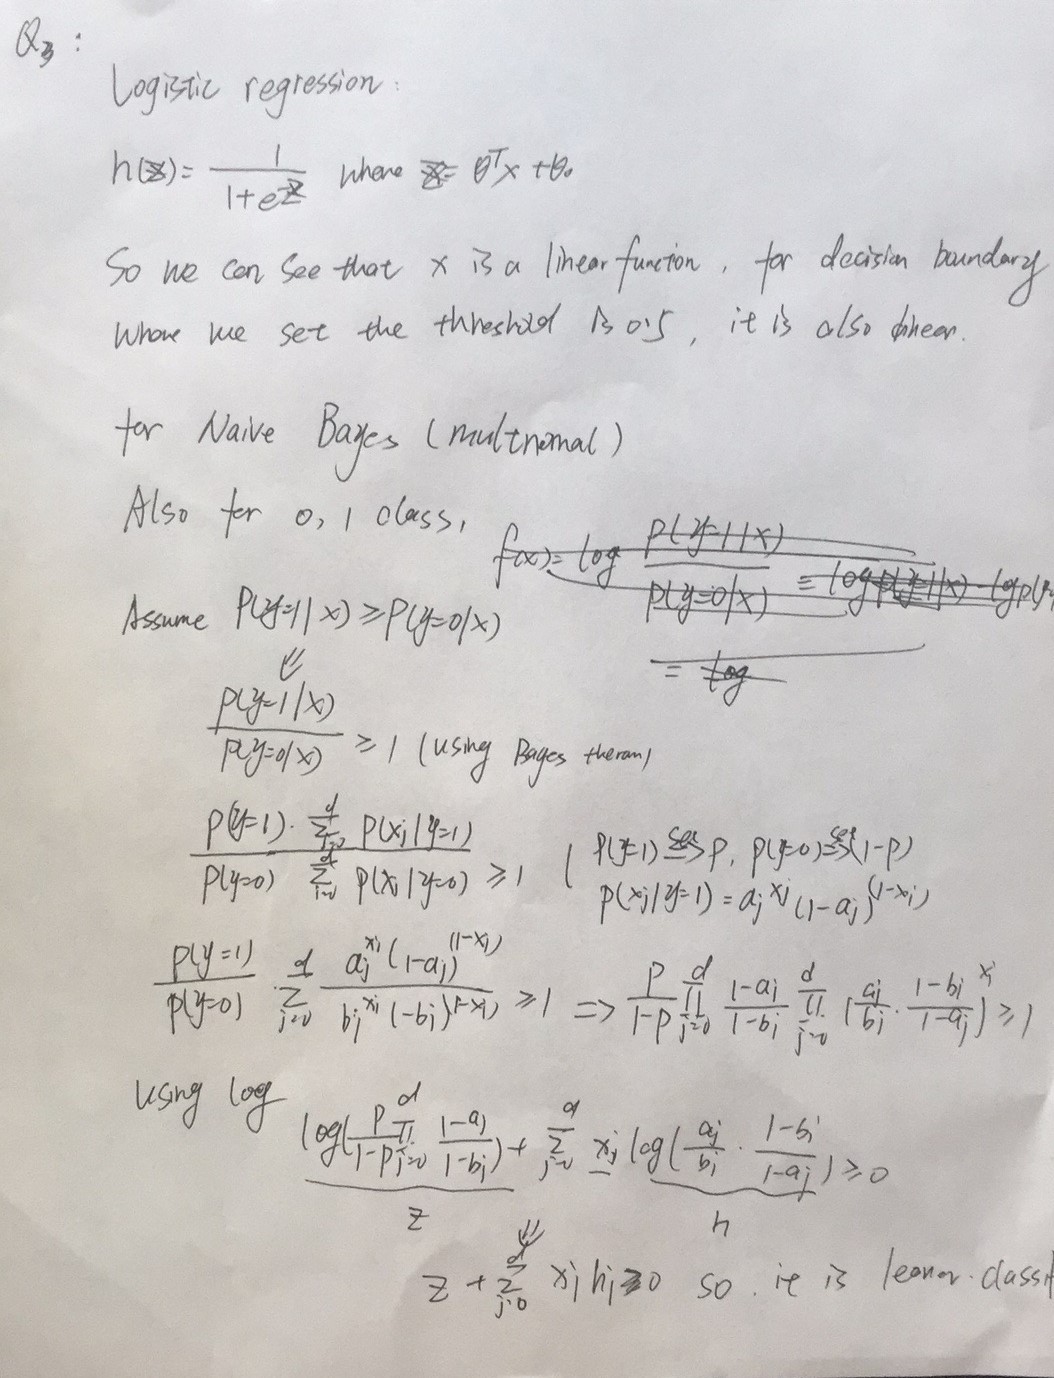 Q3:
Logistic regression:
h(z) = 1 / (1+e^-z) where z = θ^T x + θ0
So we can see that x is a linear function, for decision boundary
whose we set the threshold is 0.5, it is also linear.
for Naive Bayes (multnomal)
Also for 0, 1 class,
f(x) = log P(y=1|x) / P(y=0|x) = log P(y=1|x) - log P(y
= log
Assume P(y=1|x) ≥ P(y=0|x)
⇓
P(y=1|x) / P(y=0|x) ≥ 1 (using Bayes theram)
P(y=1) · Σ_{j=0}^d P(xj|y=1) / P(y=0) Σ_{j=0}^d P(xj|y=0) ≥ 1 ( P(y=1) set=> P, P(y=0) set=> (1-P)
P(xj|y=1) = aj^xj (1-aj)^(1-xj)
P(y=1) / P(y=0) Σ_{j=0}^d aj^xj (1-aj)^(1-xj) / bj^xj (-bj)^(1-xj) ≥ 1 => P / (1-P) Π_{j=0}^d (1-aj) / (1-bj) Π_{j=0}^d (aj/bj · (1-bj)/(1-aj))^xj ≥ 1
Using log
log(P/(1-P) Π_{j=0}^d (1-aj)/(1-bj)) + Σ_{j=0}^d xj log(aj/bj · (1-bj)/(1-aj)) ≥ 0
z h
⇓
z + Σ_{j=0}^d xj hj ≥ 0 so it is leaner classif